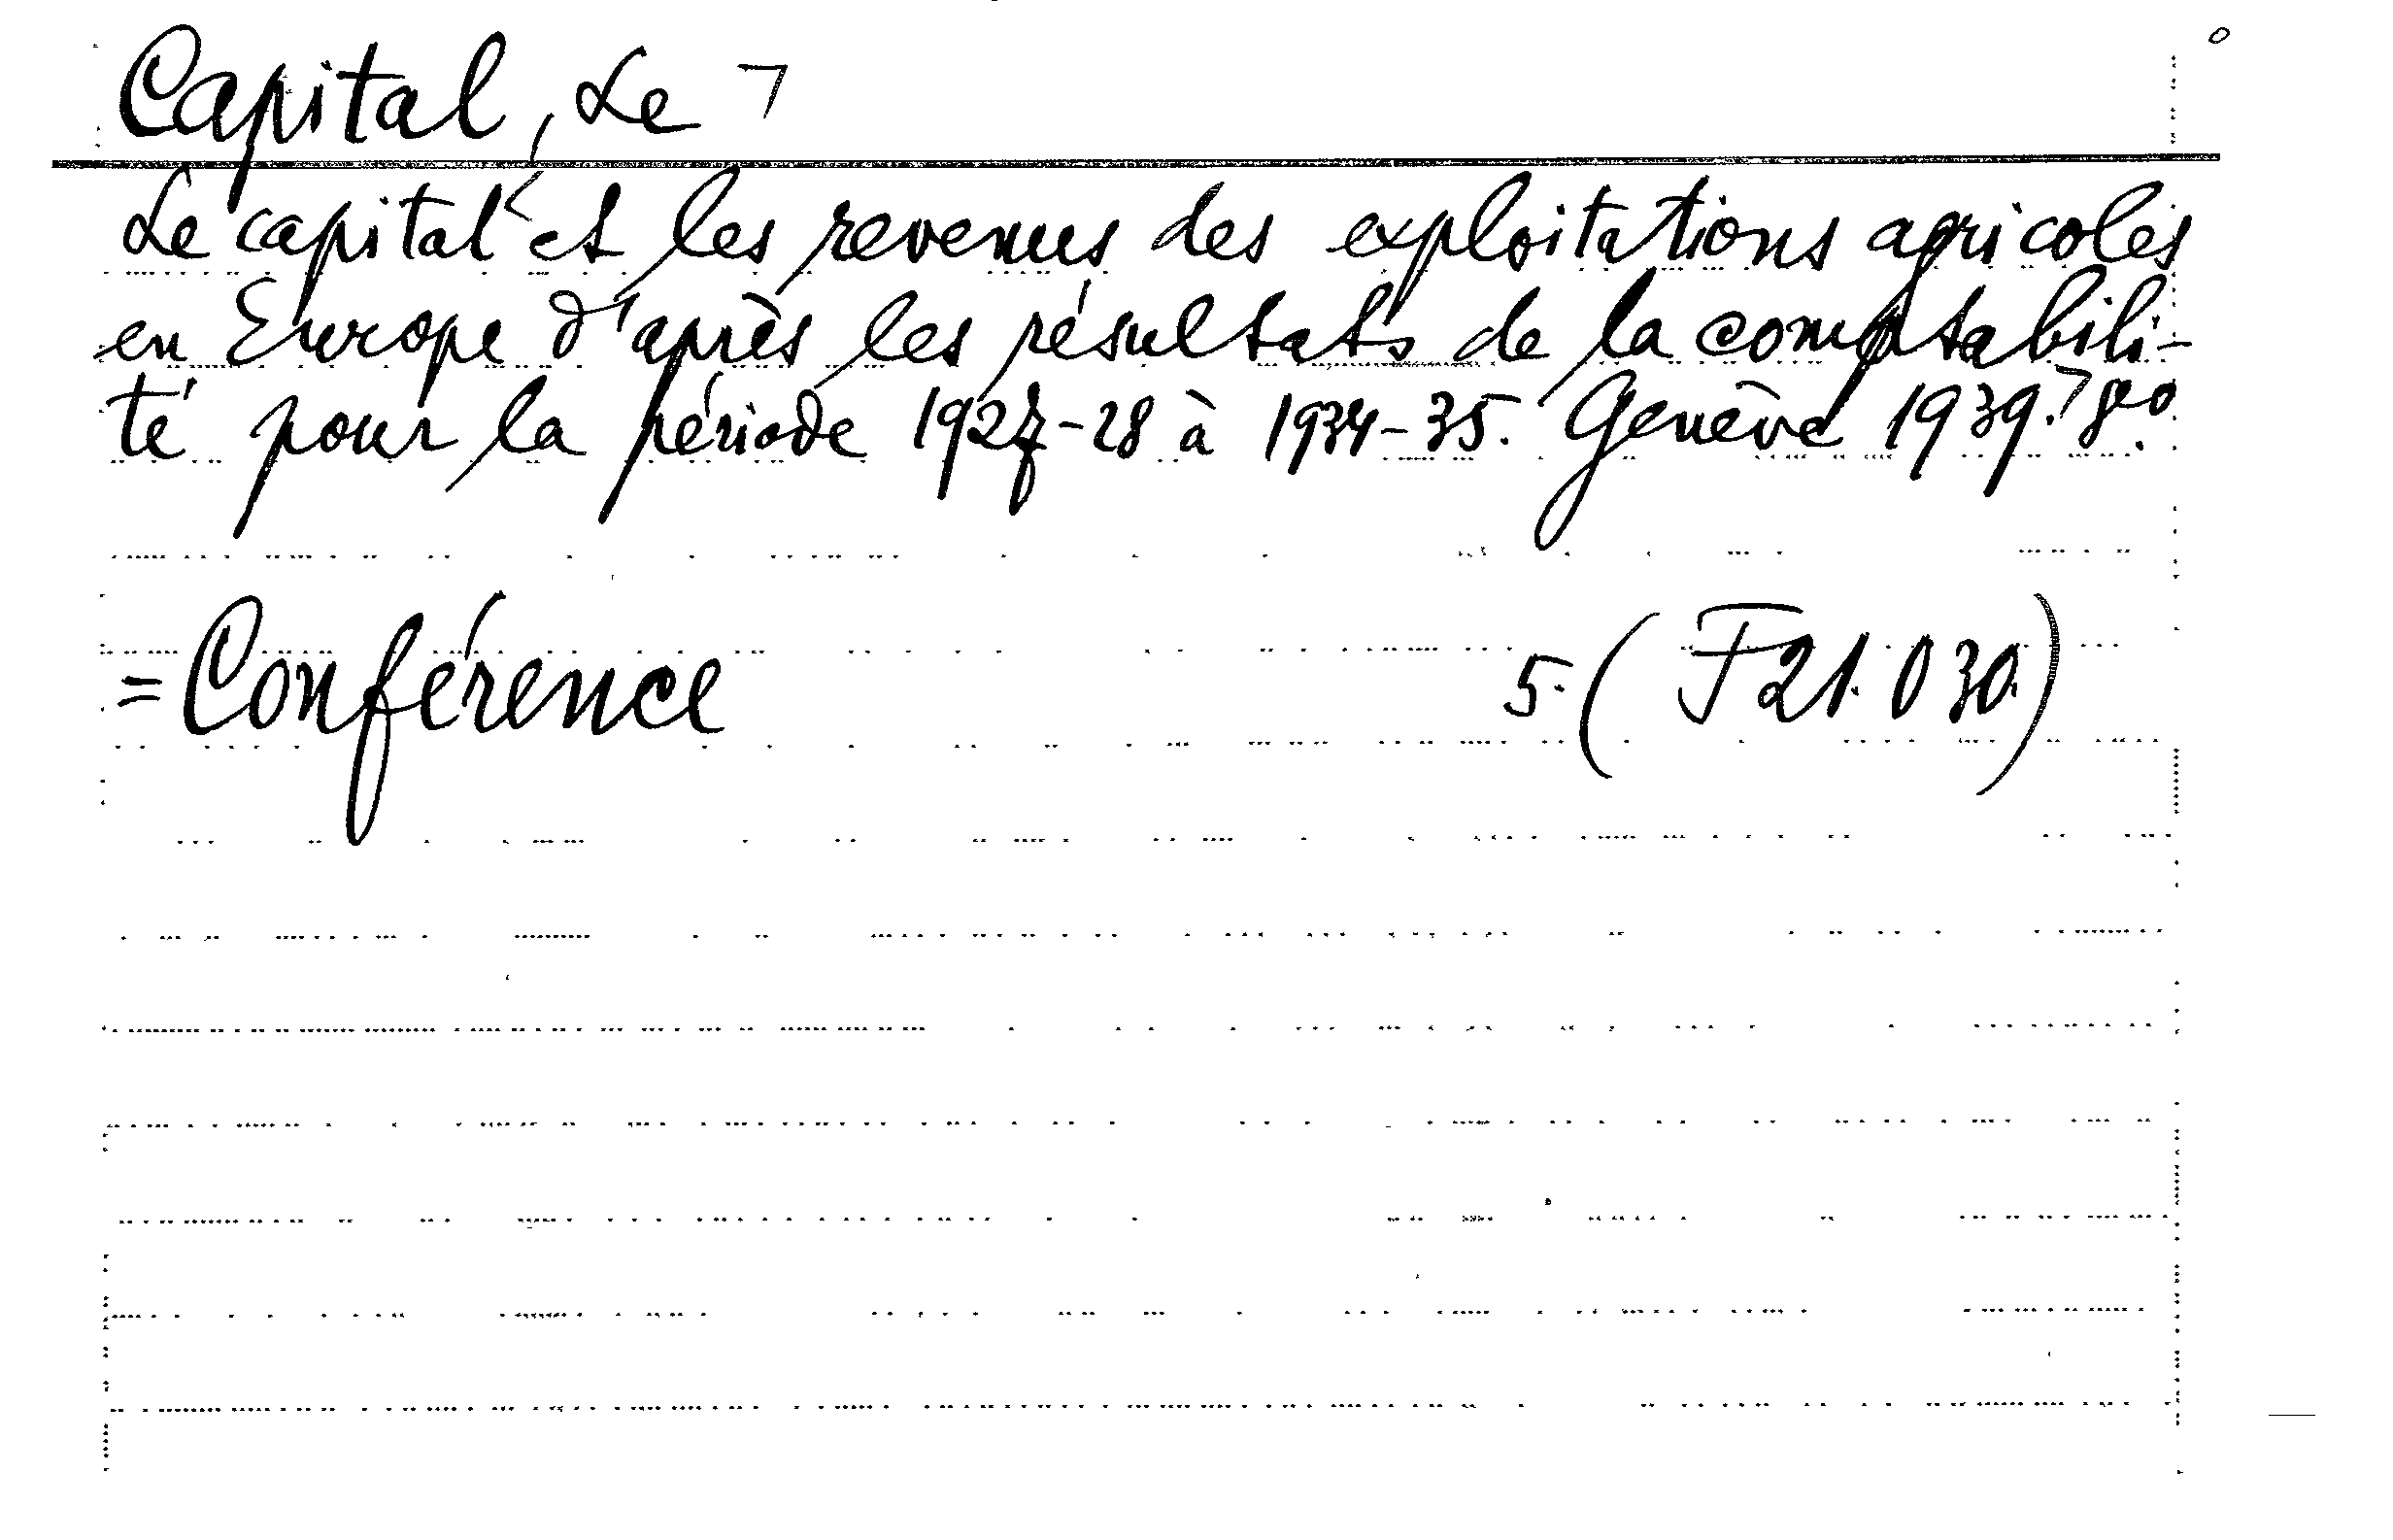 Capital, Le ¬
Le capital et les revenus des exploitations agricoles
en Europe d'après les résultats de la comptabili-
té pour la période 1927-28 à 1934-35. Genève 1939.¬ 8vo.
= Conférence 5. (F21.030)